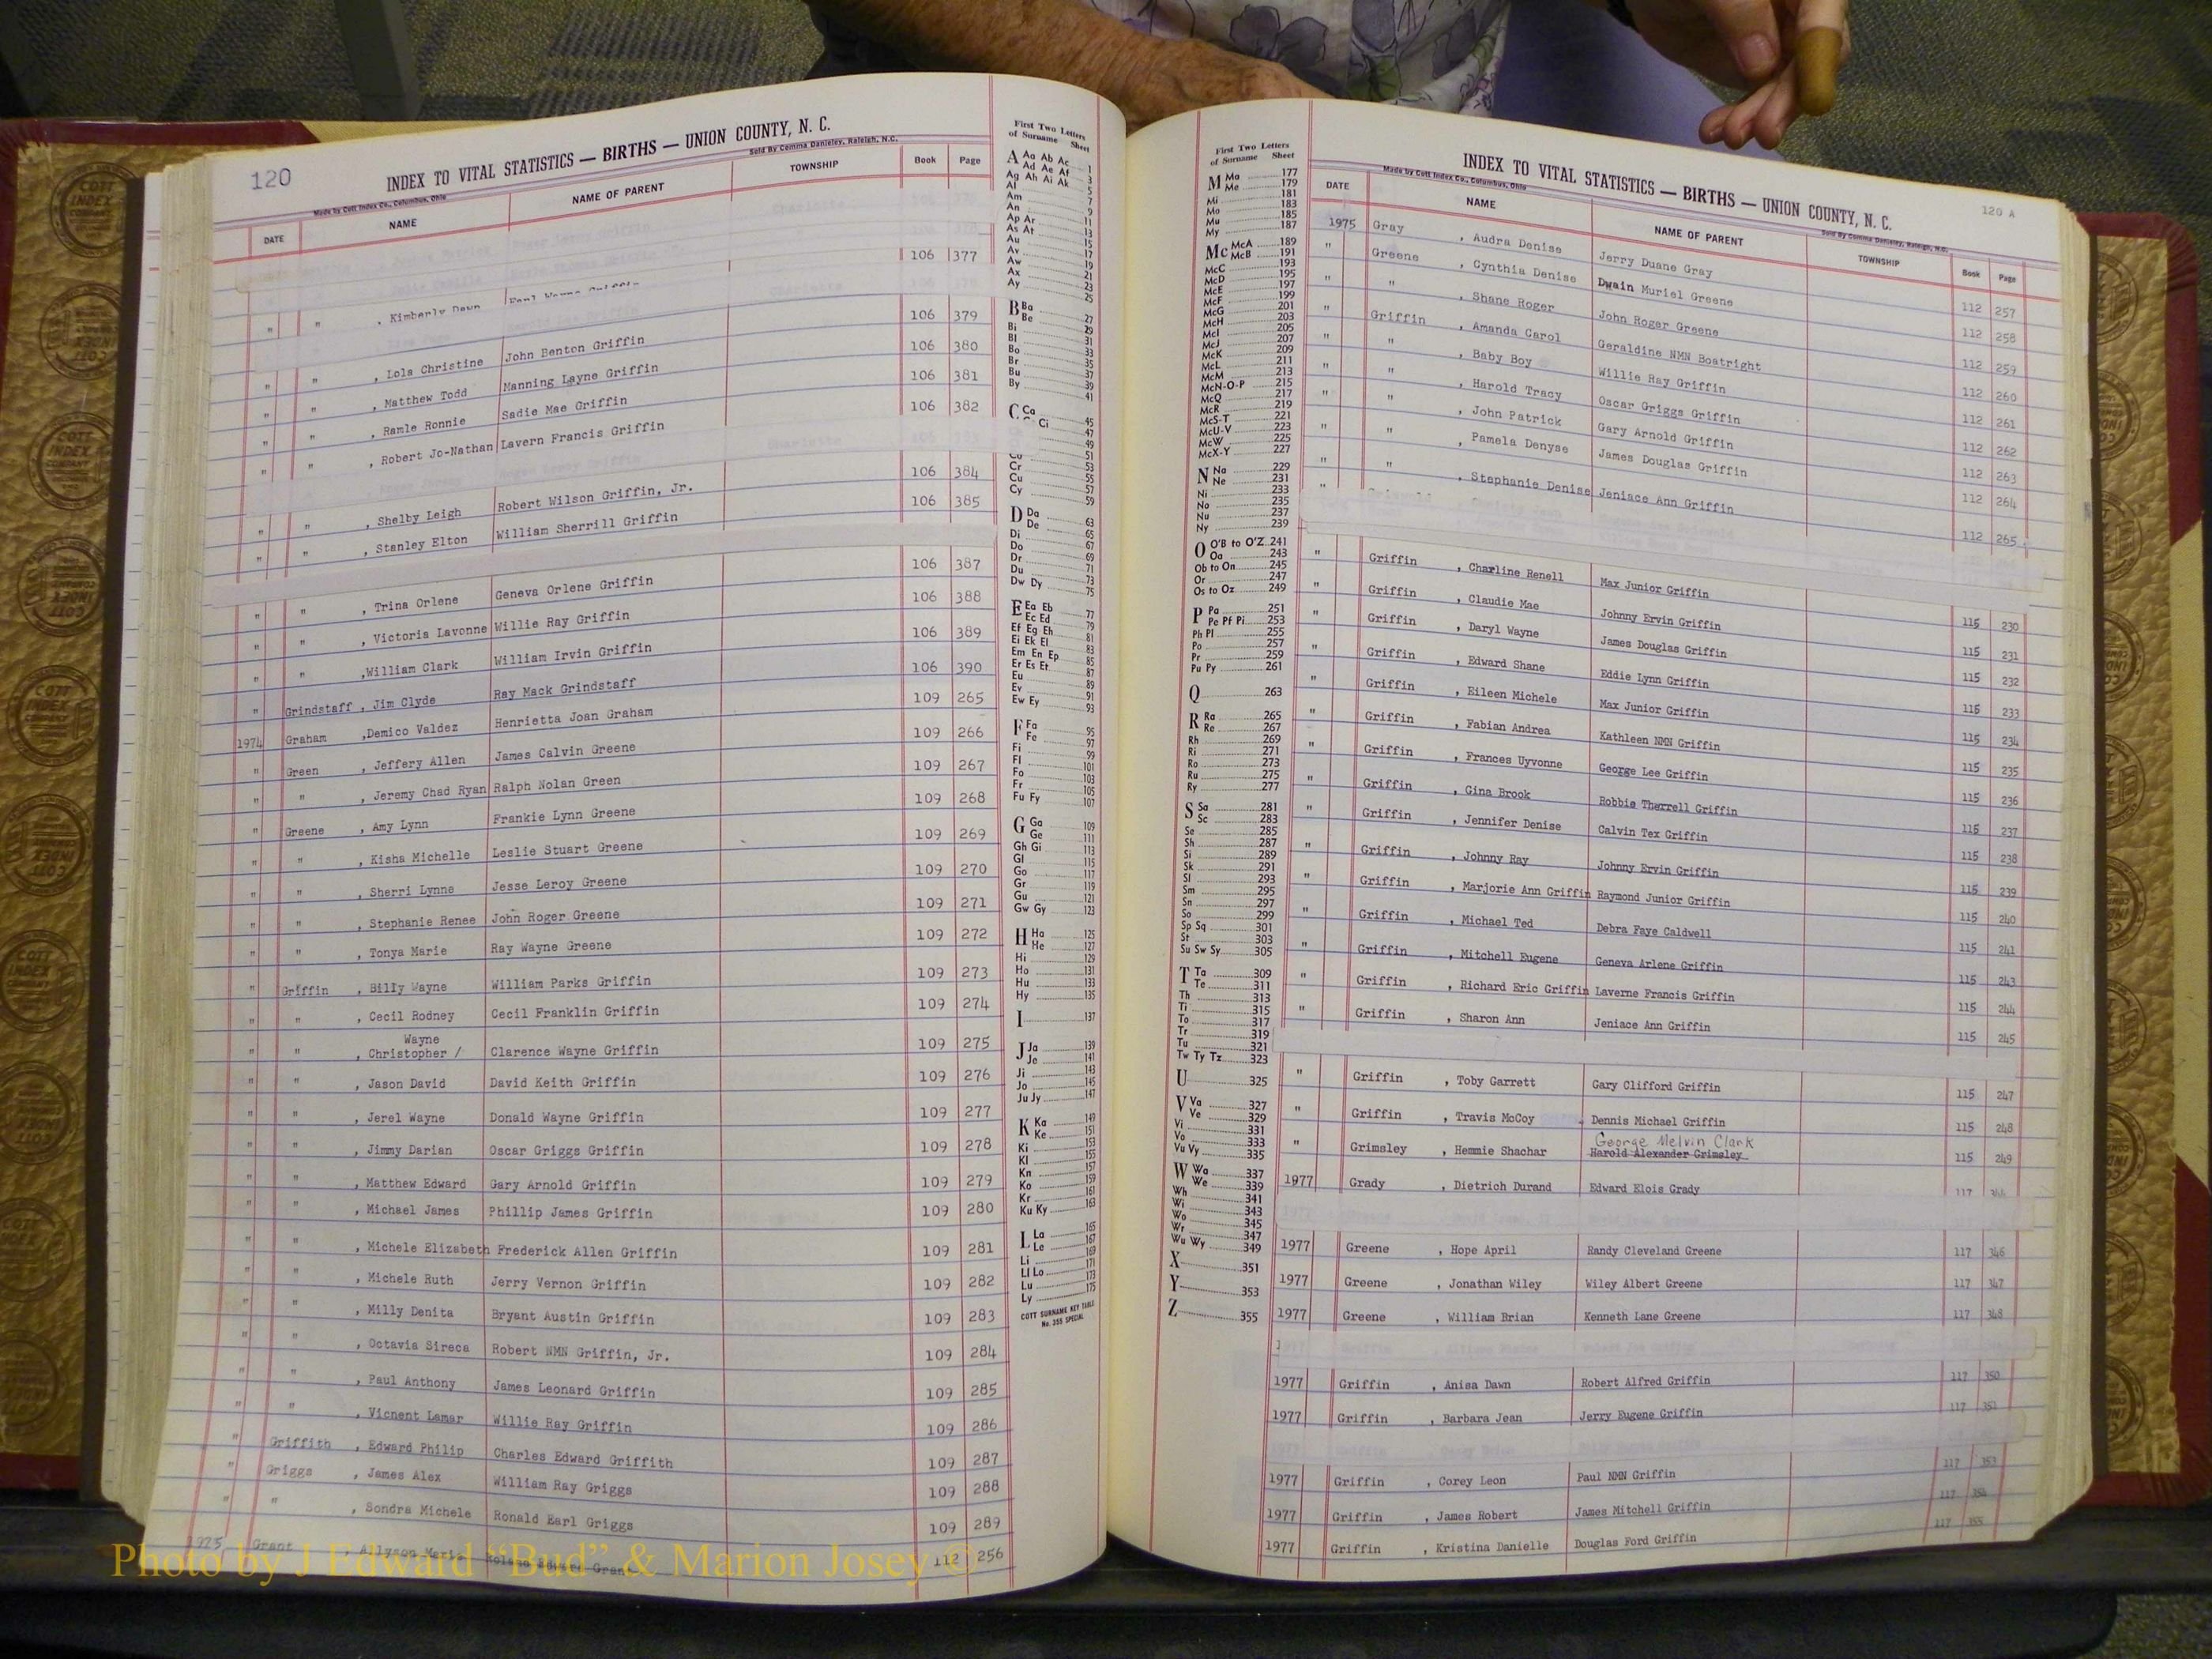 120
INDEX TO VITAL STATISTICS — BIRTHS — UNION COUNTY, N. C.
Made by Cott Index Co., Columbus, Ohio
Sold By Comma Danieley, Raleigh, N.C.
DATE NAME NAME OF PARENT TOWNSHIP Book Page
106 377
" " , Kimberly Dawn
" " , Lola Christine John Benton Griffin 106 379
" " , Matthew Todd Manning Layne Griffin 106 380
" " , Ramle Ronnie Sadie Mae Griffin 106 381
" " , Robert Jo-Nathan Lavern Francis Griffin 106 382
" " , Shelby Leigh Robert Wilson Griffin, Jr. 106 384
" " , Stanley Elton William Sherrill Griffin 106 385
" " , Trina Orlene Geneva Orlene Griffin 106 387
" " , Victoria Lavonne Willie Ray Griffin 106 388
" " ,William Clark William Irvin Griffin 106 389
" Grindstaff , Jim Clyde Ray Mack Grindstaff 106 390
1974 Graham ,Demico Valdez Henrietta Joan Graham 109 265
" Green , Jeffery Allen James Calvin Greene 109 266
" " , Jeremy Chad Ryan Ralph Nolan Green 109 267
" Greene , Amy Lynn Frankie Lynn Greene 109 268
" " , Kisha Michelle Leslie Stuart Greene 109 269
" " , Sherri Lynne Jesse Leroy Greene 109 270
" " , Stephanie Renee John Roger Greene 109 271
" " , Tonya Marie Ray Wayne Greene 109 272
" Griffin , Billy Wayne William Parks Griffin 109 273
" " , Cecil Rodney Cecil Franklin Griffin 109 274
Wayne
" " , Christopher / Clarence Wayne Griffin 109 275
" " , Jason David David Keith Griffin 109 276
" " , Jerel Wayne Donald Wayne Griffin 109 277
" " , Jimmy Darian Oscar Griggs Griffin 109 278
" " , Matthew Edward Gary Arnold Griffin 109 279
" " , Michael James Phillip James Griffin 109 280
" " , Michele Elizabeth Frederick Allen Griffin 109 281
" " , Michele Ruth Jerry Vernon Griffin 109 282
" " , Milly Denita Bryant Austin Griffin 109 283
" " , Octavia Sireca Robert NMN Griffin, Jr. 109 284
" " , Paul Anthony James Leonard Griffin 109 285
" " , Vicnent Lamar Willie Ray Griffin 109 286
" Griffith , Edward Philip Charles Edward Griffith 109 287
" Griggs , James Alex William Ray Griggs 109 288
" " , Sondra Michele Ronald Earl Griggs 109 289
1975 Grant , Allyson Marie 112 256
Photo by J Edward “Bud” & Marion Josey ©
First Two Letters
of Surname Sheet
A Aa Ab Ac 1
Ad Ae Af 3
Ag Ah Ai Ak 5
Al 7
Am 9
An 11
Ap Ar 13
As At 15
Au 17
Av 19
Aw 21
Ax 23
Ay 25
B Ba 27
Be 29
Bi 31
Bl 33
Bo 35
Br 37
Bu 39
By 41
C Ca 45
Ci 47
49
51
Cr 53
Cu 55
Cy 57
59
D Da 63
De 65
Di 67
Do 69
Dr 71
Du 73
Dw Dy 75
E Ea Eb 77
Ec Ed 79
Ef Eg Eh 81
Ei Ek El 83
Em En Ep 85
Er Es Et 87
Eu 89
Ev 91
Ew Ey 93
F Fa 95
Fe 97
Fi 99
Fl 101
Fo 103
Fr 105
Fu Fy 107
G Ga 109
Ge 111
Gh Gi 113
Gl 115
Go 117
Gr 119
Gu 121
Gw Gy 123
H Ha 125
He 127
Hi 129
Ho 131
Hu 133
Hy 135
I 137
J Ja 139
Je 141
Ji 143
Jo 145
Ju Jy 147
K Ka 149
Ke 151
Ki 153
Kl 155
Kn 157
Ko 159
Kr 161
Ku Ky 163
L La 165
Le 167
Li 169
Ll Lo 171
Lu 173
Ly 175
COTT SURNAME KEY TABLE
No. 355 SPECIAL
First Two Letters
of Surname Sheet
M Ma 177
Me 179
Mi 181
Mo 183
Mu 185
My 187
Mc McA 189
McB 191
McC 193
McD 195
McE 197
McF 199
McG 201
McH 203
McI 205
McJ 207
McK 209
McL 211
McM 213
McN-O-P 215
McQ 217
McR 219
McS-T 221
McU-V 223
McW 225
McX-Y 227
N Na 229
Ne 231
Ni 233
No 235
Nu 237
Ny 239
O O'B to O'Z 241
Oa 243
Ob to On 245
Or 247
Os to Oz 249
P Pa 251
Pe Pf Pi 253
Ph Pl 255
Po 257
Pr 259
Pu Py 261
Q 263
R Ra 265
Re 267
Rh 269
Ri 271
Ro 273
Ru 275
Ry 277
S Sa 281
Sc 283
Se 285
Sh 287
Si 289
Sk 291
Sl 293
Sm 295
Sn 297
So 299
Sp Sq 301
St 303
Su Sw Sy 305
T Ta 309
Te 311
Th 313
Ti 315
To 317
Tr 319
Tu 321
Tw Ty Tz 323
U 325
V Va 327
Ve 329
Vi 331
Vo 333
Vu Vy 335
W Wa 337
We 339
Wh 341
Wi 343
Wo 345
Wr 347
Wu Wy 349
X 351
Y 353
Z 355
120 A
INDEX TO VITAL STATISTICS — BIRTHS — UNION COUNTY, N. C.
Made by Cott Index Co., Columbus, Ohio
Sold By Comma Danieley, Raleigh, N.C.
DATE NAME NAME OF PARENT TOWNSHIP Book Page
1975 Gray , Audra Denise Jerry Duane Gray 112 257
" Greene , Cynthia Denise Dwain Muriel Greene 112 258
" " , Shane Roger John Roger Greene 112 259
" Griffin , Amanda Carol Geraldine NMN Boatright 112 260
" " , Baby Boy Willie Ray Griffin 112 261
" " , Harold Tracy Oscar Griggs Griffin 112 262
" " , John Patrick Gary Arnold Griffin 112 263
" " , Pamela Denyse James Douglas Griffin 112 264
" " , Stephanie Denise Jeniace Ann Griffin 112 265
" Griffin , Charline Renell Max Junior Griffin 115 230
" Griffin , Claudie Mae Johnny Ervin Griffin 115 231
" Griffin , Daryl Wayne James Douglas Griffin 115 232
" Griffin , Edward Shane Eddie Lynn Griffin 115 233
" Griffin , Eileen Michele Max Junior Griffin 115 234
" Griffin , Fabian Andrea Kathleen NMN Griffin 115 235
" Griffin , Frances Uyvonne George Lee Griffin 115 236
" Griffin , Gina Brook Robbie Tharrell Griffin 115 237
" Griffin , Jennifer Denise Calvin Tex Griffin 115 238
" Griffin , Johnny Ray Johnny Ervin Griffin 115 239
" Griffin , Marjorie Ann Griffin Raymond Junior Griffin 115 240
" Griffin , Michael Ted Debra Faye Caldwell 115 241
" Griffin , Mitchell Eugene Geneva Arlene Griffin 115 243
" Griffin , Richard Eric Griffin Laverne Francis Griffin 115 244
" Griffin , Sharon Ann Jeniace Ann Griffin 115 245
" Griffin , Toby Garrett Gary Clifford Griffin 115 247
" Griffin , Travis McCoy Dennis Michael Griffin 115 248
George Melvin Clark
" Grimsley , Hemmie Shachar Harold Alexander Grimsley 115 249
1977 Grady , Dietrich Durand Edward Elois Grady 117
1977 Greene , Hope April Randy Cleveland Greene 117 346
1977 Greene , Jonathan Wiley Wiley Albert Greene 117 347
1977 Greene , William Brian Kenneth Lane Greene 117 348
1977 Griffin , Anisa Dawn Robert Alfred Griffin 117 350
1977 Griffin , Barbara Jean Jerry Eugene Griffin 117 351
1977 Griffin , Corey Leon Paul NMN Griffin 117 353
1977 Griffin , James Robert James Mitchell Griffin 117 354
1977 Griffin , Kristina Danielle Douglas Ford Griffin 117 355